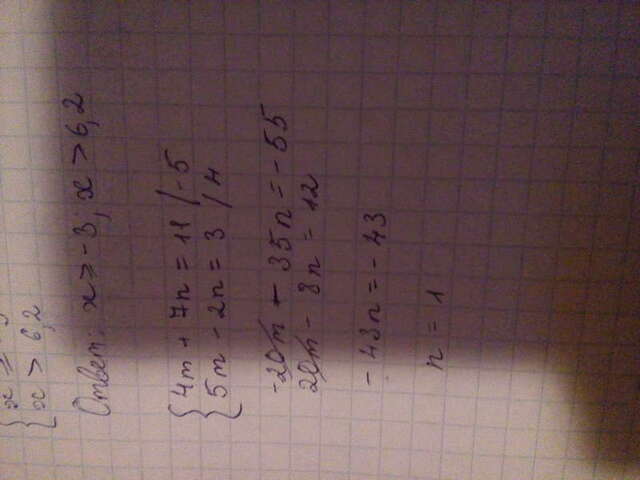 x > 6,2
Ответ: x ≥ -3; x > 6,2
4m + 7n = 11 / -5
5m - 2n = 3 / 4
-20m - 35n = -55
20m - 8n = 12
- 43n = - 43
n = 1